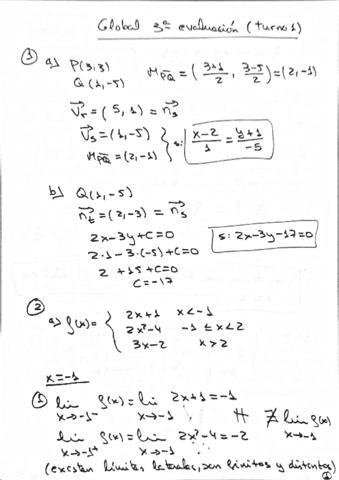 Global 3ª evaluación (turno 1)
① a) P(3,3)
Q(1,-5)
M_PQ = ( (3+1)/2 , (3-5)/2 ) = (2,-1)
v_r = (5,1) = n_s
v_s = (1,-5)
M_PQ = (2,-1)
s: (x-2)/1 = (y+1)/-5
b) Q(1,-5)
n_t = (2,-3) = n_s
2x-3y+C=0
2·1-3·(-5)+C=0
2+15+C=0
C=-17
s: 2x-3y-17=0
② a) f(x) = { 2x+1 x<-1
2x²-4 -1≤x<2
3x-2 x>2
x=-1
① lim x→-1⁻ f(x) = lim x→-1 2x+1 = -1
lim x→-1⁺ f(x) = lim x→-1 2x²-4 = -2
∦ ∄ lim x→-1 f(x)
(existen límites laterales, son finitos y distintos)